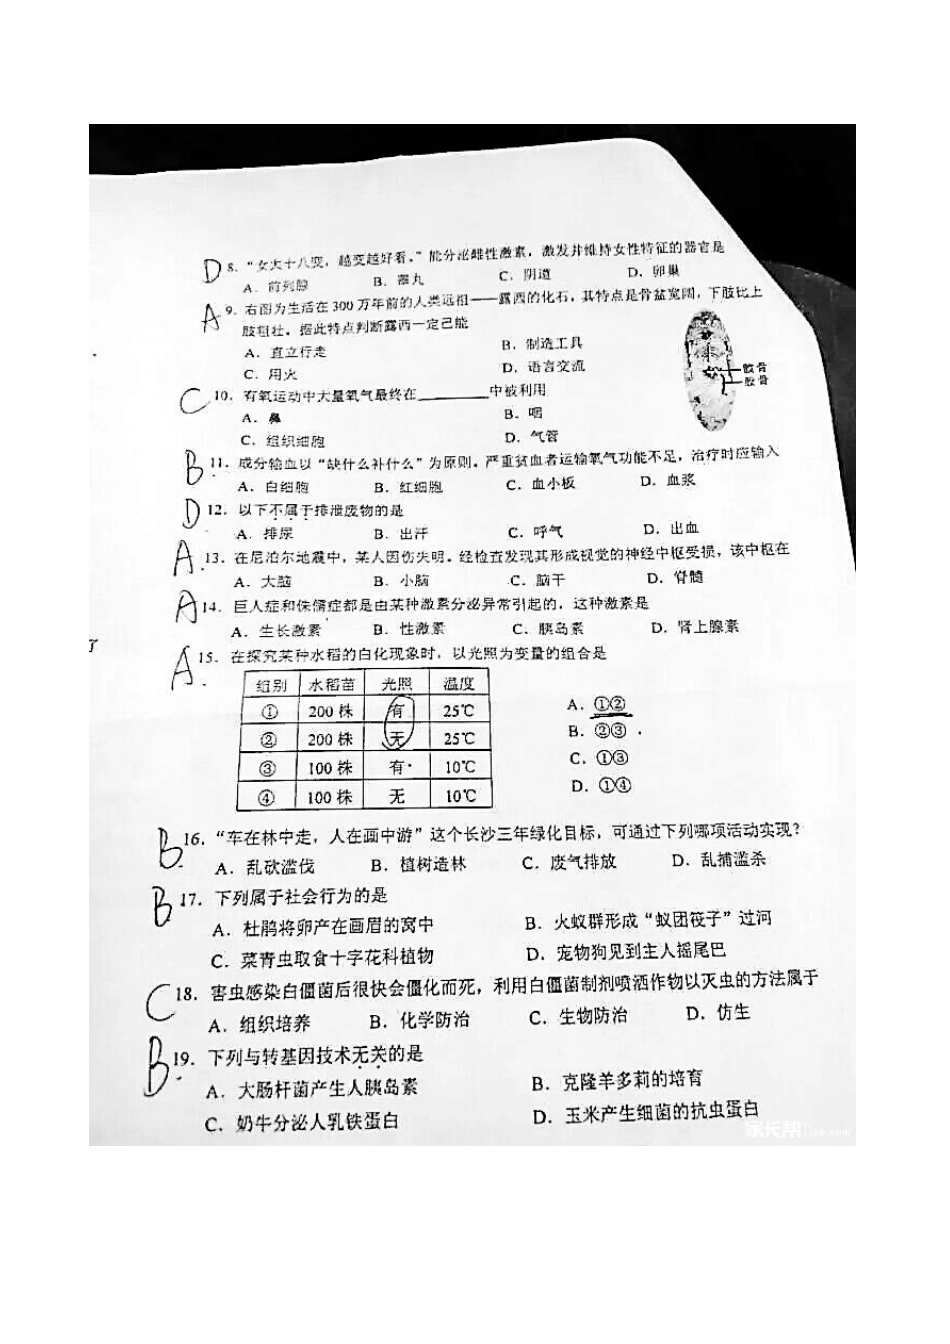 D 8．“女大十八变，越变越好看。”能分泌雌性激素，激发并维持女性特征的器官是
A．前列腺 B．睾丸 C．阴道 D．卵巢
A 9．右图为生活在 300 万年前的人类远祖——露西的化石，其特点是骨盆宽阔，下肢比上
肢粗壮。据此特点判断露西一定已能
A．直立行走 B．制造工具
C．用火 D．语言交流
髋骨
股骨
C 10．有氧运动中大量氧气最终在________中被利用
A．鼻 B．咽
C．组织细胞 D．气管
B 11．成分输血以“缺什么补什么”为原则。严重贫血者运输氧气功能不足，治疗时应输入
A．白细胞 B．红细胞 C．血小板 D．血浆
D 12．以下不属于排泄废物的是
A．排尿 B．出汗 C．呼气 D．出血
A 13．在尼泊尔地震中，某人因伤失明。经检查发现其形成视觉的神经中枢受损，该中枢在
A．大脑 B．小脑 C．脑干 D．脊髓
A 14．巨人症和侏儒症都是由某种激素分泌异常引起的，这种激素是
A．生长激素 B．性激素 C．胰岛素 D．肾上腺素
了
A 15．在探究某种水稻的白化现象时，以光照为变量的组合是
组别 水稻苗 光照 温度
① 200 株 有 25℃
② 200 株 无 25℃
③ 100 株 有 10℃
④ 100 株 无 10℃
A．①②
B．②③
C．①③
D．①④
B 16．“车在林中走，人在画中游”这个长沙三年绿化目标，可通过下列哪项活动实现？
A．乱砍滥伐 B．植树造林 C．废气排放 D．乱捕滥杀
B 17．下列属于社会行为的是
A．杜鹃将卵产在画眉的窝中 B．火蚁群形成“蚁团筏子”过河
C．菜青虫取食十字花科植物 D．宠物狗见到主人摇尾巴
C 18．害虫感染白僵菌后很快会僵化而死，利用白僵菌制剂喷洒作物以灭虫的方法属于
A．组织培养 B．化学防治 C．生物防治 D．仿生
B 19．下列与转基因技术无关的是
A．大肠杆菌产生人胰岛素 B．克隆羊多莉的培育
C．奶牛分泌人乳铁蛋白 D．玉米产生细菌的抗虫蛋白
家长帮